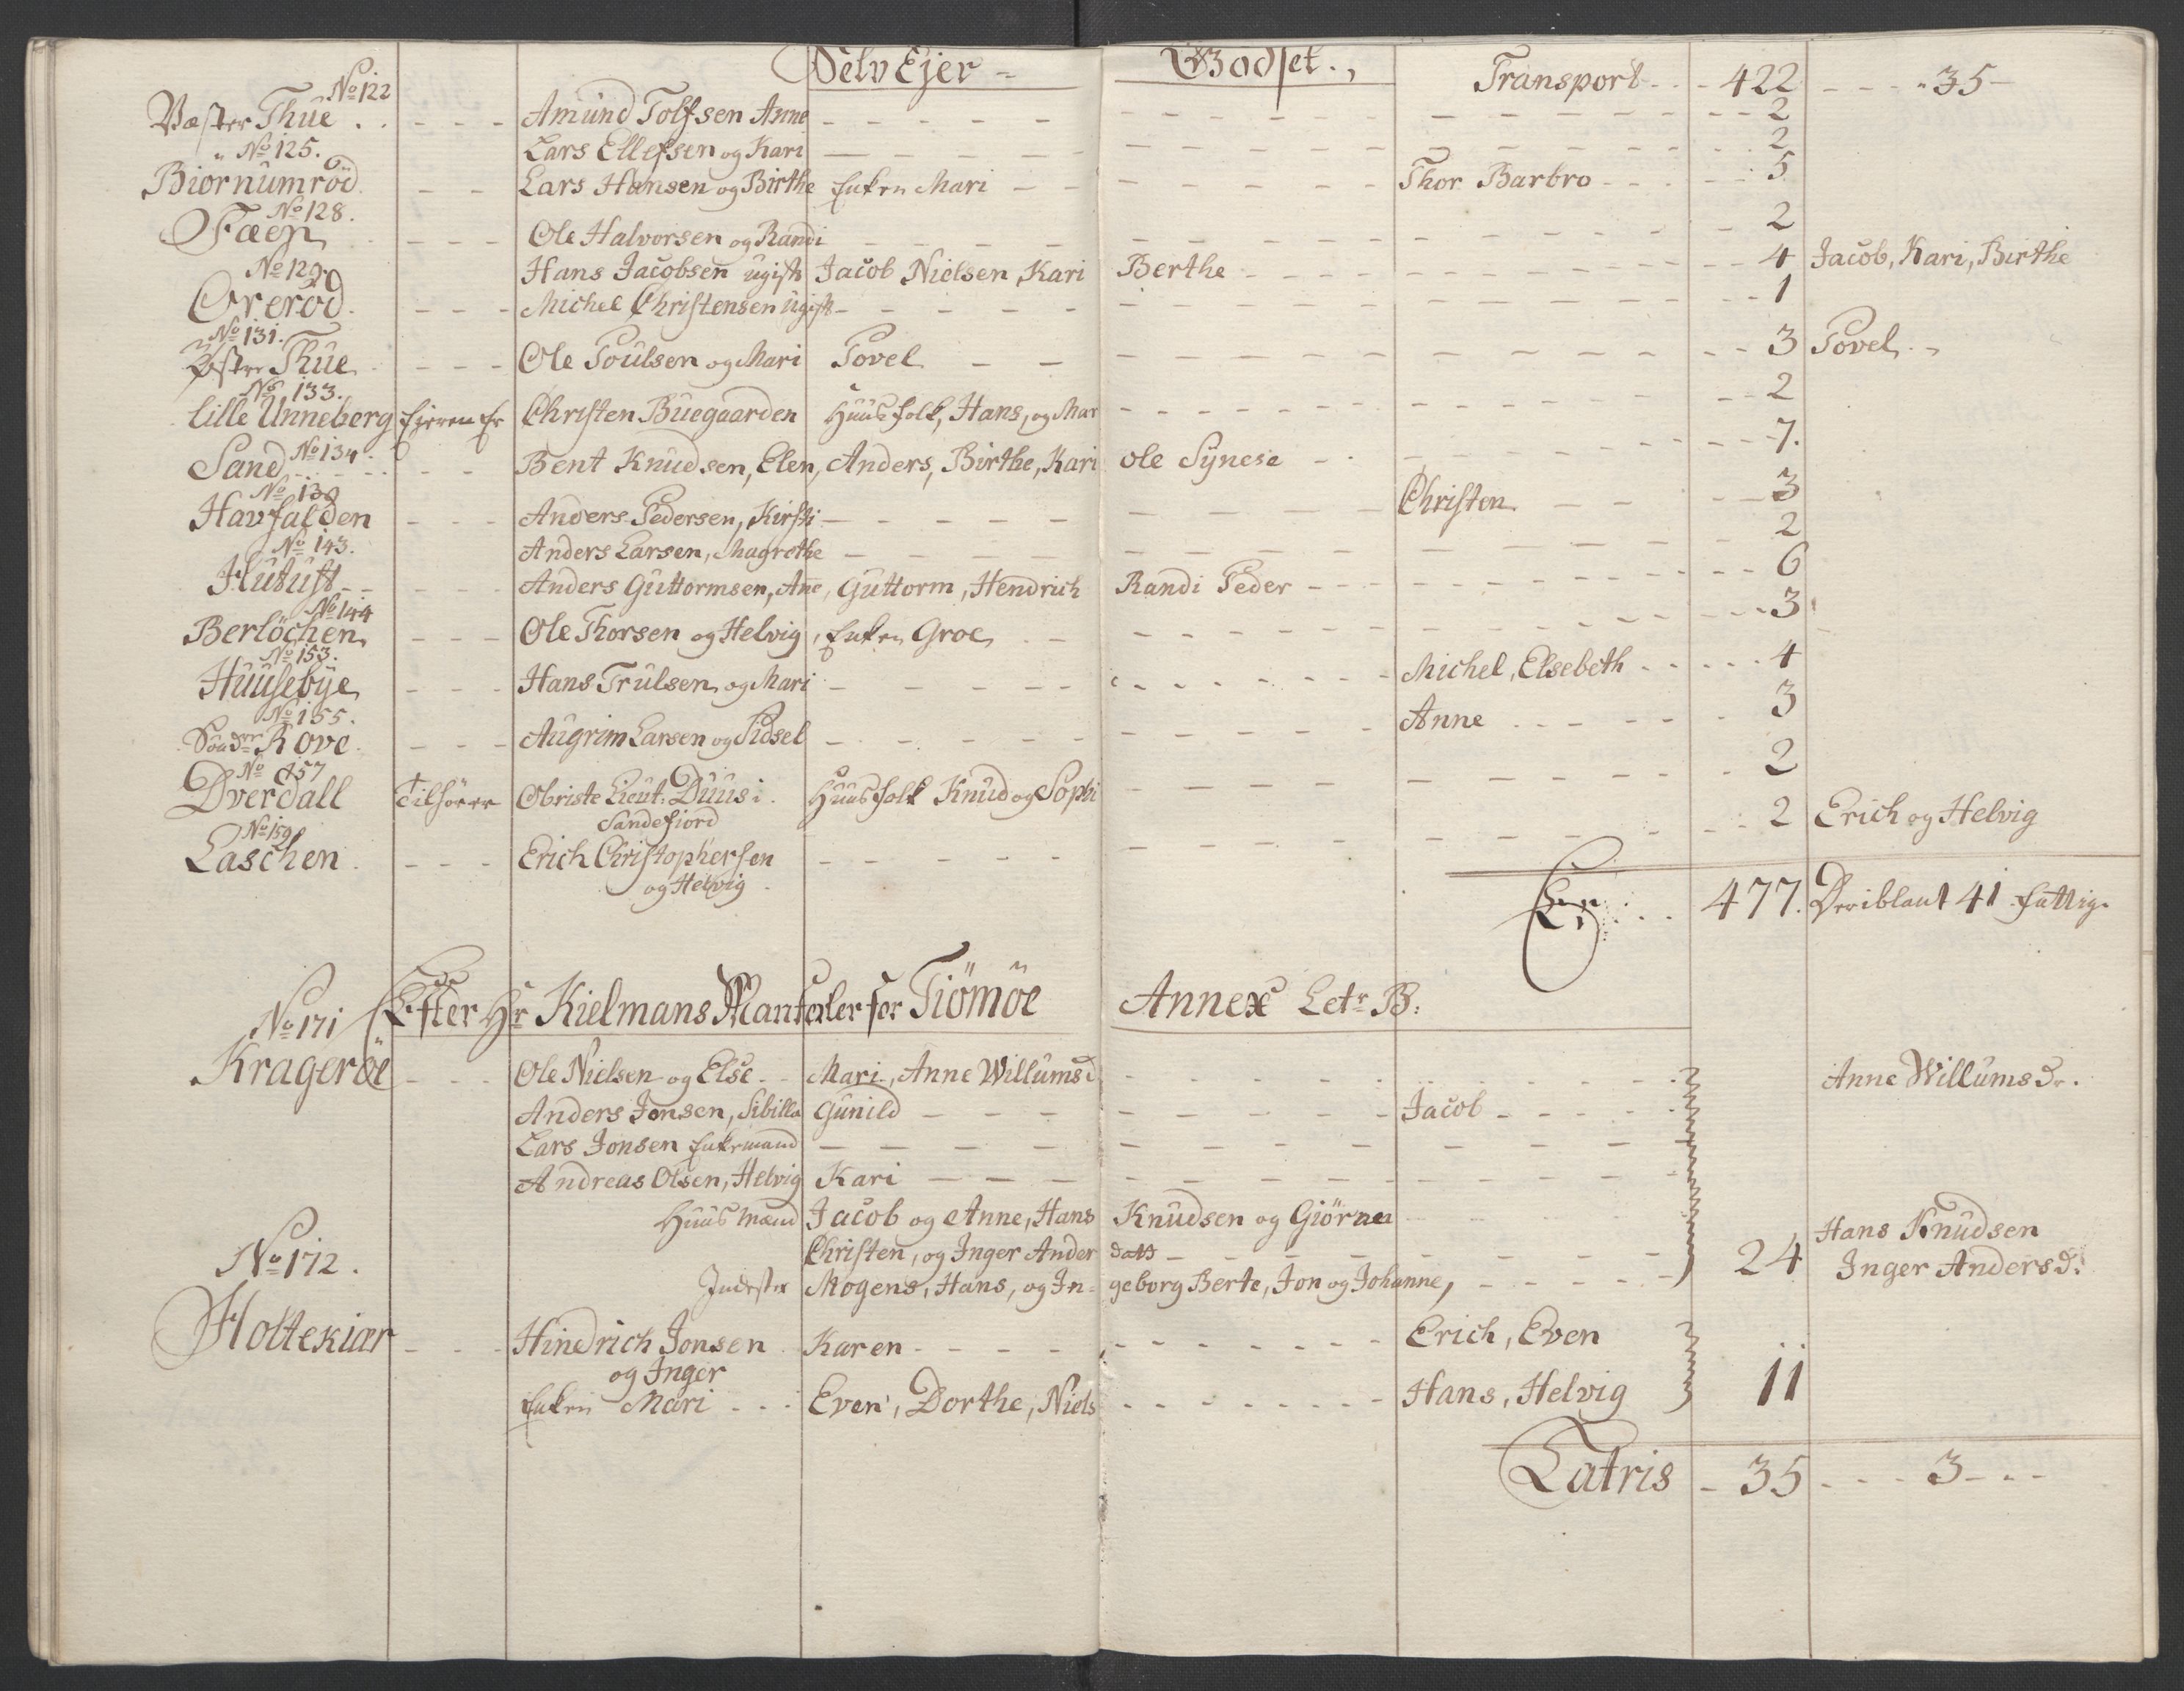 Selv Ejer - Godset.,
Transport - - 422 - - - " 35 -
No 122
Væster Thue . . - - - Amund Tolfsen Anne - - - - - 2
" No 125. Lars Ellefsen og Kari - - - - - 2
Biornumröd. - - Lars Hansen og Birthe Enken Mari - - - Thor Barbro - - - 5
No 128.
Faen - - - Ole Halvorsen og Randi - - - - 2
No 129 Hans Jacobsen ugift Jacob Nielsen, Kari Berthe - - - - 4 Jacob, Kari, Birthe
Oreröd. - - - Michel Christensen ugift - - - - 1
No 131.
Østre Thue - - - Ole Poulsen og Mari Povel - - - - 3 Povel. -
No 133.
Lille Unneberg Ejeren Er Christen Buegaarden Huusfolk, Hans, og Mar - - - - 2
Sand No 134. - - Bent Knudsen, Elen, Anders, Birthe, Kari ole Synese - - - - 7.
No 139
Havfalden - - - Anders Pedersen, Kirsti - - - - Christen - - - 3
No 143. Anders Larsen, Magrethe - - - - 2
Hutuft - - - - - Anders Guttormsen, Ane, Guttorm, Hendrich Randi Peder - - - - 6
No 144
Berlöchen - - - Ole Thorsen og Helvig, Enken Groe - - - - 3
No 153.
Huusebye - - - Hans Trulsen og Mari - - - - Michel, Elsebeth - - - 4
No 155.
Sönder Rove - - - Augrim Larsen og Sidsel - - - - Anne - - - 3
No 157
Dverdall Tilhörer Obriste Lieut: Duus i Huusfolk Knud og Sophi - - - - 2
Sandefiord
No 159
Laschen - - - Erich Christophersen - - - - 2 Erich og Helvig
og Helvig
477. Deriblant 41 fattige
Efter Hr Kielmans Mantaler for Tiömöe Annex Letr B:
No 171
Kragerøe - - - Ole Nielsen og Else - - Mari, Anne Willumsd - - - - Anne Willumsdr.
Anders Jonsen, Sibilla Gunild - - - - Jacob - - - -
Lars Jonsen Enkemand - - - -
Andreas Olsen, Helvig Kari - - - -
Huusmænd Jacob og Anne, Hans Knudsen og Giörne - - - Hans Knudsen
No 172. Christen, og Inger Anders datt - - - - 24 Inger Andersd:
Inderster Mogens, Hans, og Ingeborg Berte, Jon og Johanne, - - - -
Holtekiær - - - Hindrich Jonsen Karen - - - - Erich, Even
og Inger
Enken Mari - - - Even, Dorthe, Niels - - - - Hans, Helvig 11
Latris - 35 - - - 3 - - -